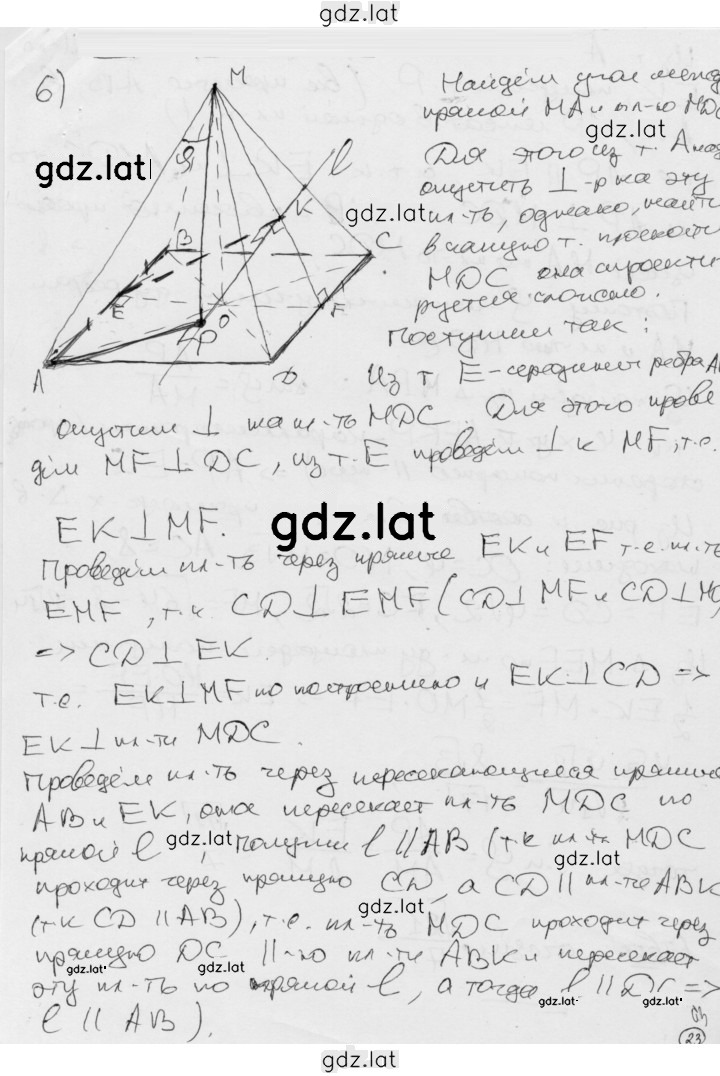 gdz.lat
6)
M
Найдём угол между
прямой MA и пл-ю MDC
gdz.lat
Для этого из т. A надо
gdz.lat
опустить ⊥-р на эту
gdz.lat
пл-ть, однако, найти
в какую т. плоскости
MDC она спроекти
руется сложно.
Поступим так:
φ
l
B
K
C
E
O
F
P
A
D
Из т E-середины ребра AB
опустим ⊥ на пл-ть MDC Для этого прове
дём MF⊥DC, из т. E проведём ⊥ к MF, т.е.
EK⊥MF.
gdz.lat
Проведём пл-ть через прямые EK и EF т.е. пл-ть
EMF, т.к CD⊥EMF (CD⊥MF и CD⊥MO)
=> CD⊥EK.
т.е. EK⊥MF по построению и EK⊥CD =>
EK⊥ пл-ти MDC.
Проведём пл-ть через пересекающиеся прямые
AB и EK, она пересекает пл-ть MDC по
прямой l, Получим l || AB (т.к пл-ть MDC
gdz.lat
gdz.lat
проходит через прямую CD, а CD || пл-ти ABK
gdz.lat
(т.к CD || AB), т.е. пл-ть MDC проходит через
прямую DC ||-но пл-ти ABK и пересекает
gdz.lat
gdz.lat
эту пл-ть по прямой l, а тогда l || DC =>
gdz.lat
gdz.lat
l || AB).
23
gdz.lat